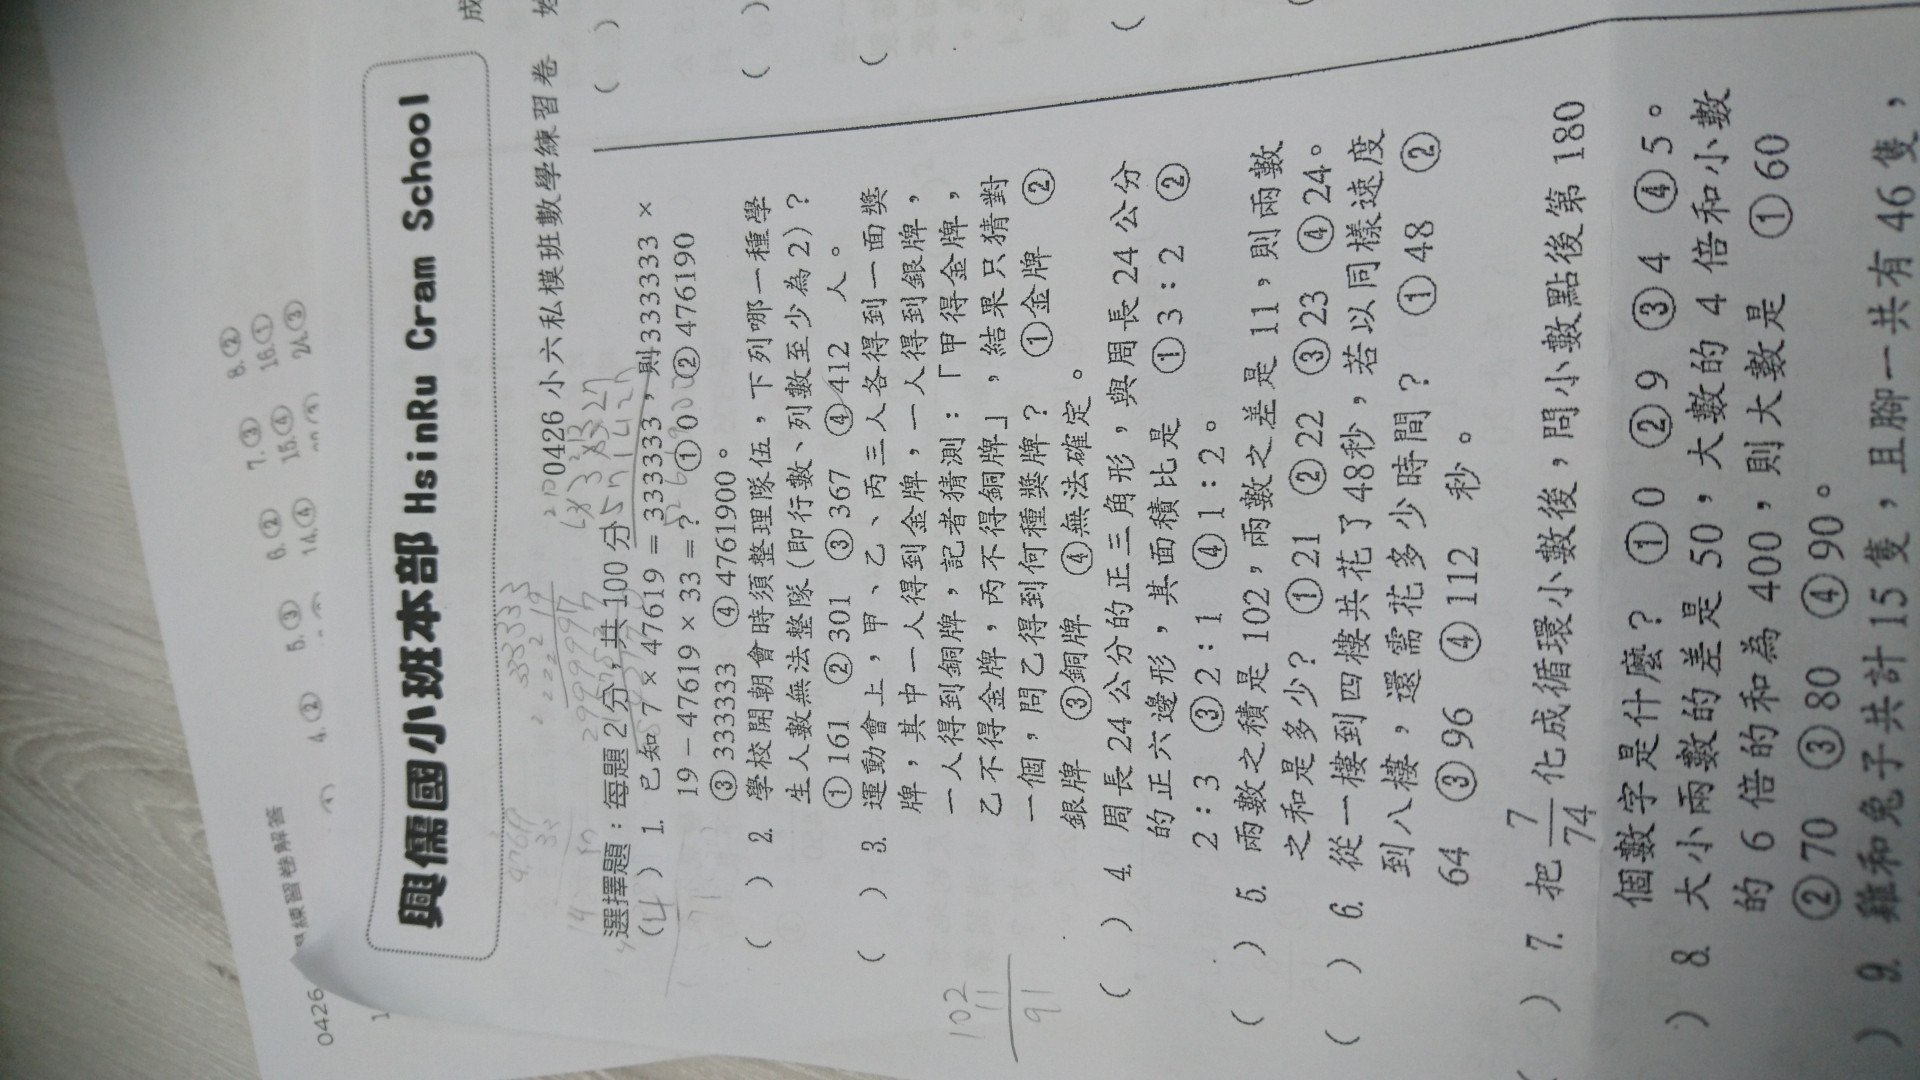 0426
練習卷解答
4.② 5.③ 6.② 7.③ 8.②
14.④ 15.④ 16.①
24.③
興儒國小班本部 HsinRu Cram School
0426 小六私模班數學練習卷 姓
成
選擇題：每題 2 分，共 100 分
( ) 1. 已知 7 × 47619 = 333333，則 333333 ×
19 − 47619 × 33 = ? ① 0 ② 476190
③ 333333 ④ 4761900。
( ) 2. 學校開朝會時須整理隊伍，下列哪一種學
生人數無法整隊（即行數、列數至少為 2）？
① 161 ② 301 ③ 367 ④ 412 人。
( ) 3. 運動會上，甲、乙、丙三人各得到一面獎
牌，其中一人得到金牌，一人得到銀牌，
一人得到銅牌，記者猜測：「甲得金牌，
乙不得金牌，丙不得銅牌」，結果只猜對
一個，問乙得到何種獎牌？ ①金牌 ②
銀牌 ③銅牌 ④無法確定。
( ) 4. 周長 24 公分的正三角形，與周長 24 公分
的正六邊形，其面積比是 ① 3：2 ②
2：3 ③ 2：1 ④ 1：2。
( ) 5. 兩數之積是 102，兩數之差是 11，則兩數
之和是多少？ ① 21 ② 22 ③ 23 ④ 24。
( ) 6. 從一樓到四樓共花了 48 秒，若以同樣速度
到八樓，還需花多少時間？ ① 48 ②
64 ③ 96 ④ 112 秒。
( ) 7. 把 7/74 化成循環小數後，問小數點後第 180
個數字是什麼？ ① 0 ② 9 ③ 4 ④ 5。
) 8. 大小兩數的差是 50，大數的 4 倍和小數
的 6 倍的和為 400，則大數是 ① 60
② 70 ③ 80 ④ 90。
) 9. 雞和兔子共計 15 隻，且腳一共有 46 隻，
102
11
91